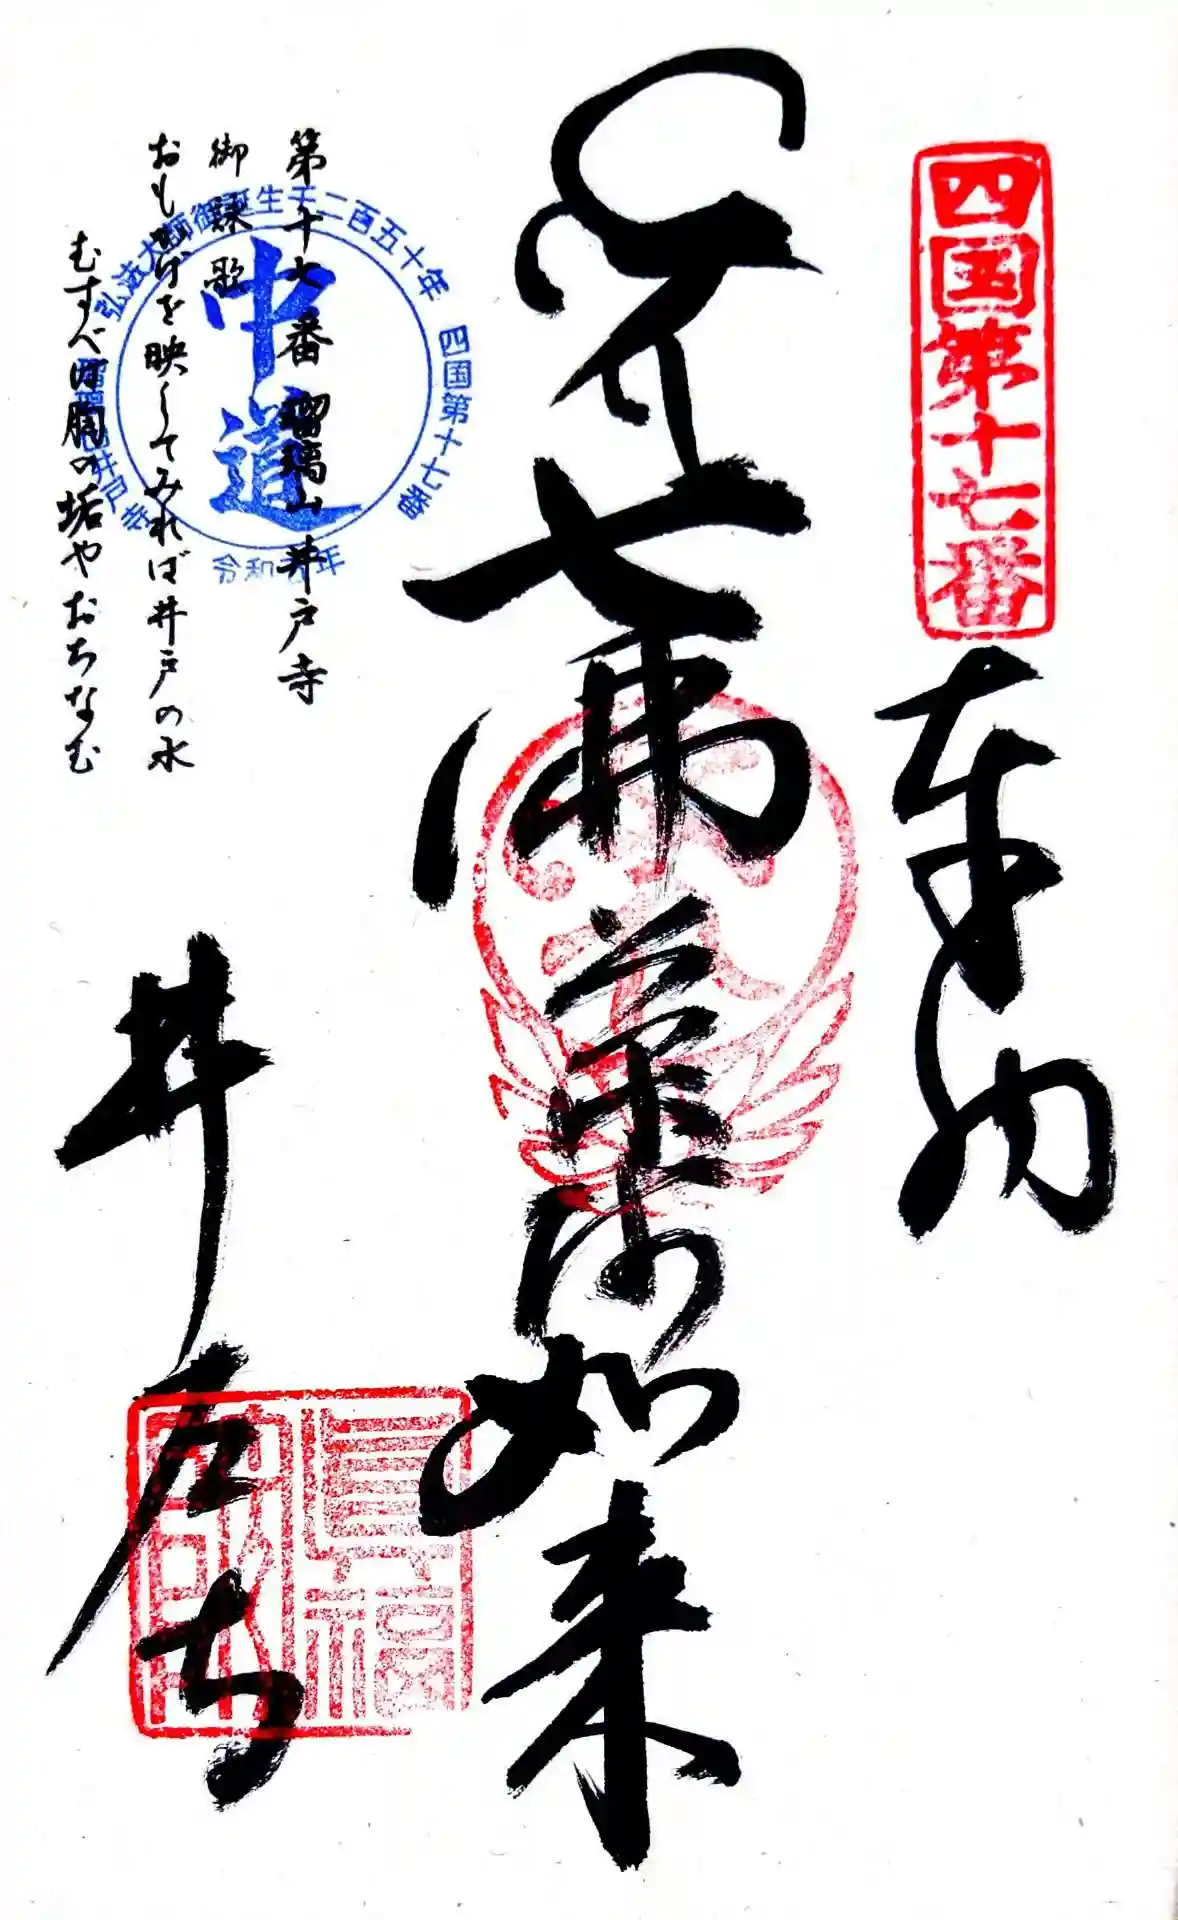 四国第十七番
奉納
七佛薬師如来
井戸寺
第十七番 瑠璃山 井戸寺
御詠歌
おもかげを映してみれば井戸の水
むすべば胸の垢やおちなむ
弘法大師御誕生千二百五十年
四国第十七番
井戸寺
中道
令和五年